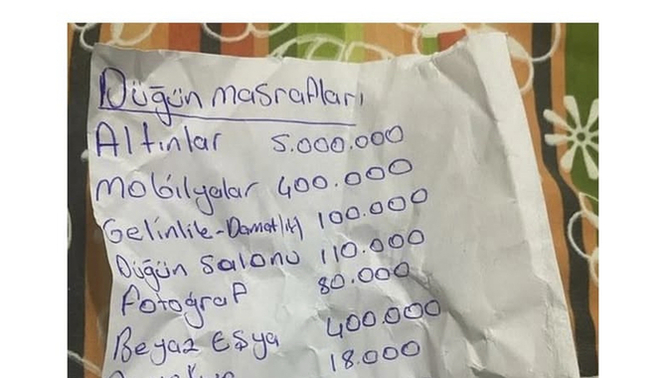 Düğün masrafları
Altınlar 5.000.000
Mobilyalar 400.000
Gelinlik-Damatlık 100.000
Düğün Salonu 110.000
Fotoğraf 80.000
Beyaz Eşya 400.000
18.000